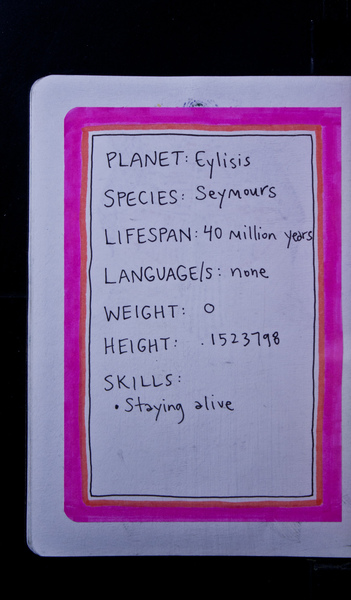 PLANET: Eylisis
SPECIES: Seymours
LIFESPAN: 40 million years
LANGUAGE/S: none
WEIGHT: 0
HEIGHT: .1523798
SKILLS:
• Staying alive